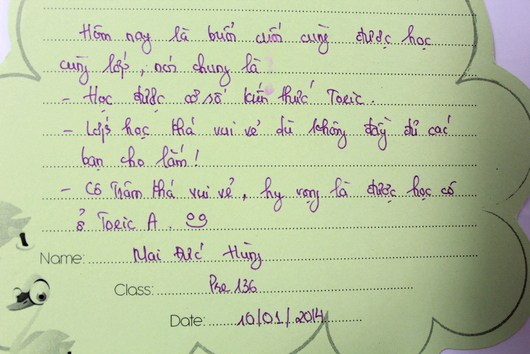 Hôm nay là buổi cuối cùng được học
cùng lớp, nói chung là
- Học được cơ số kiến thức Toeic.
- Lớp học khá vui vẻ dù không đầy đủ các
bạn cho lắm!
- Cô Trâm khá vui vẻ, hy vọng là được học cô
ở Toeic A.
Name: Mai Đức Hùng
Class: Pre 136
Date: 10/01/2014